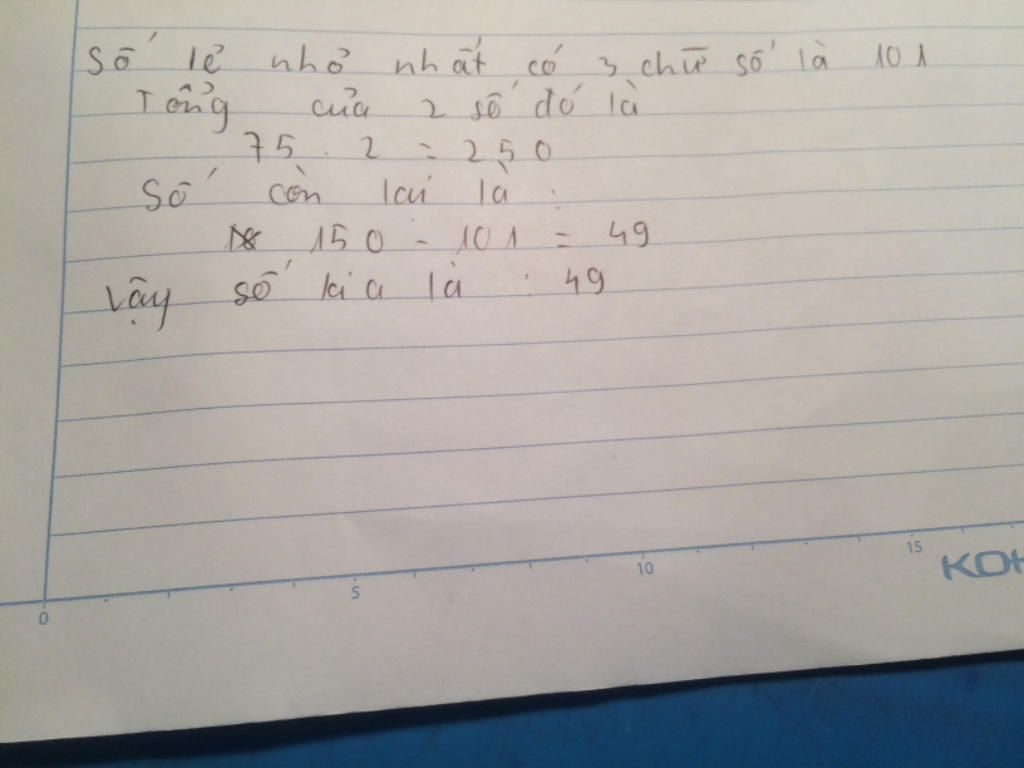 Số lẻ nhỏ nhất có 3 chữ số là 101
Tổng của 2 số đó là
75 . 2 = 250
Số còn lại là :
150 - 101 = 49
Vậy số kia là : 49
0 5 10 15
KOK